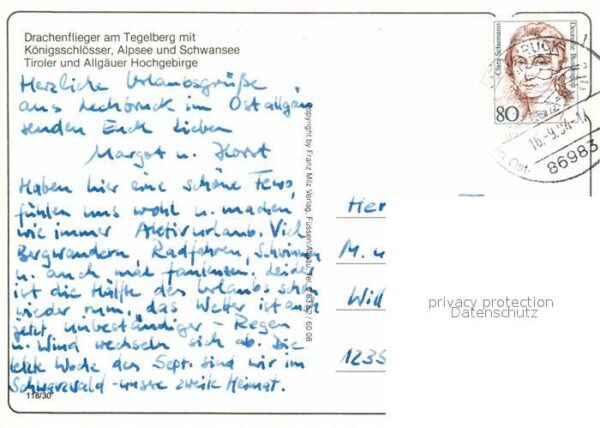 Drachenflieger am Tegelberg mit
Königsschlösser, Alpsee und Schwansee
Tiroler und Allgäuer Hochgebirge
Herzliche Urlaubsgrüße
aus Lechbruck im Ostallgäu
senden Euch lieben
Margot u. Horst
Haben hier eine schöne Fewo,
fühlen uns wohl u. machen
wie immer Aktivurlaub. Viel
Bergwandern, Radfahren, Schwimmen
u. auch mal faulenzen. Leider
ist die Hälfte des Urlaubs schon
wieder rum, das Wetter ist auch
jetzt unbeständiger - Regen
u. Wind wechseln sich ab. Die
letzte Woche des Sept. sind wir im
Schwarzwald - unsere zweite Heimat.
118/30
Copyright by Franz Milz Verlag, Füssen/Allgäu, Tel. 60 08
Clara Schumann
Deutsche Bundespost
80
16.-9.94-17
86983
Her
M. u
Will
1235
privacy protection
Datenschutz